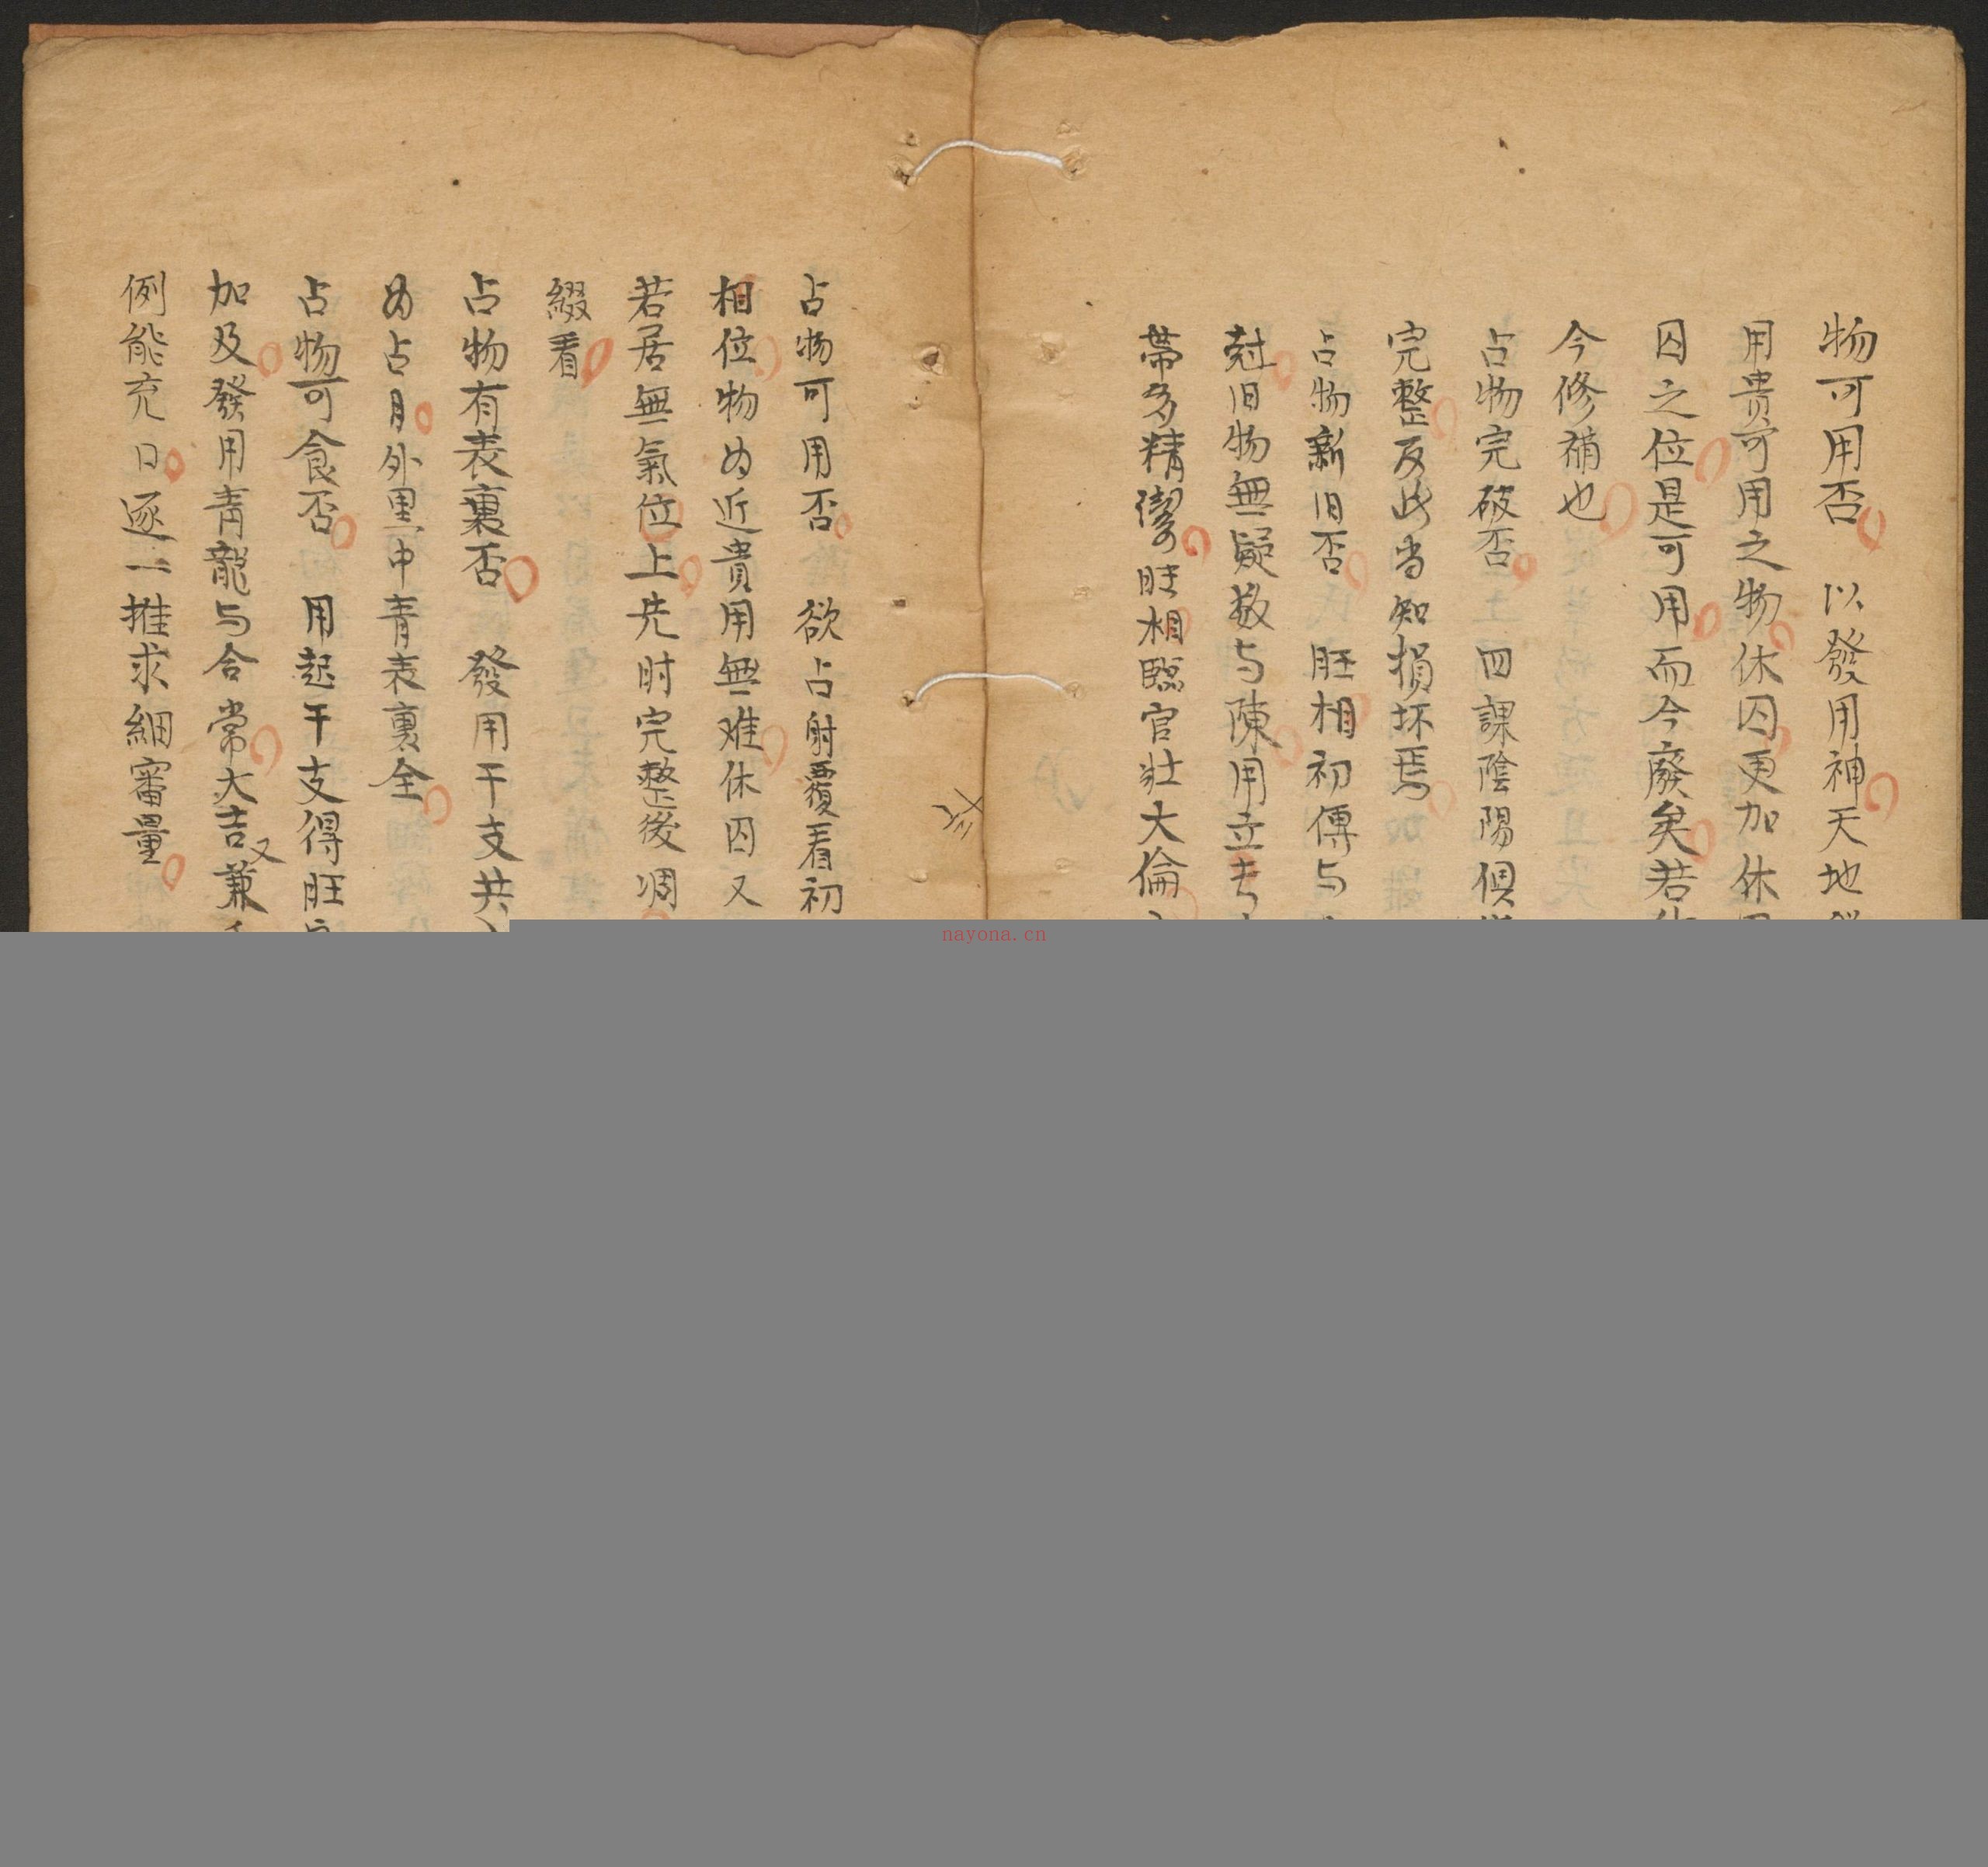 物可用否 以發用神天地
用贵可用之物休囚更加休
囚之位是可用而今廢矣若
今修補也
占物完破否 四課陰陽俱
完整反此当知損坏焉
占物新旧否 旺相初傳与
尅旧物無疑敬与陳用立
帶多精潔旺相臨官壯大倫
占物可用否 欲占射覆看初
相位物为近貴用無难休囚又
若居無氣位上先时完整後凋
綴看
占物有表裏否 發用干支共
为占月外里中青表裏全
占物可食否 用起干支得旺
加及發用青龍与合常大吉又兼
例能充口逐一推求細審量
nayona.cn